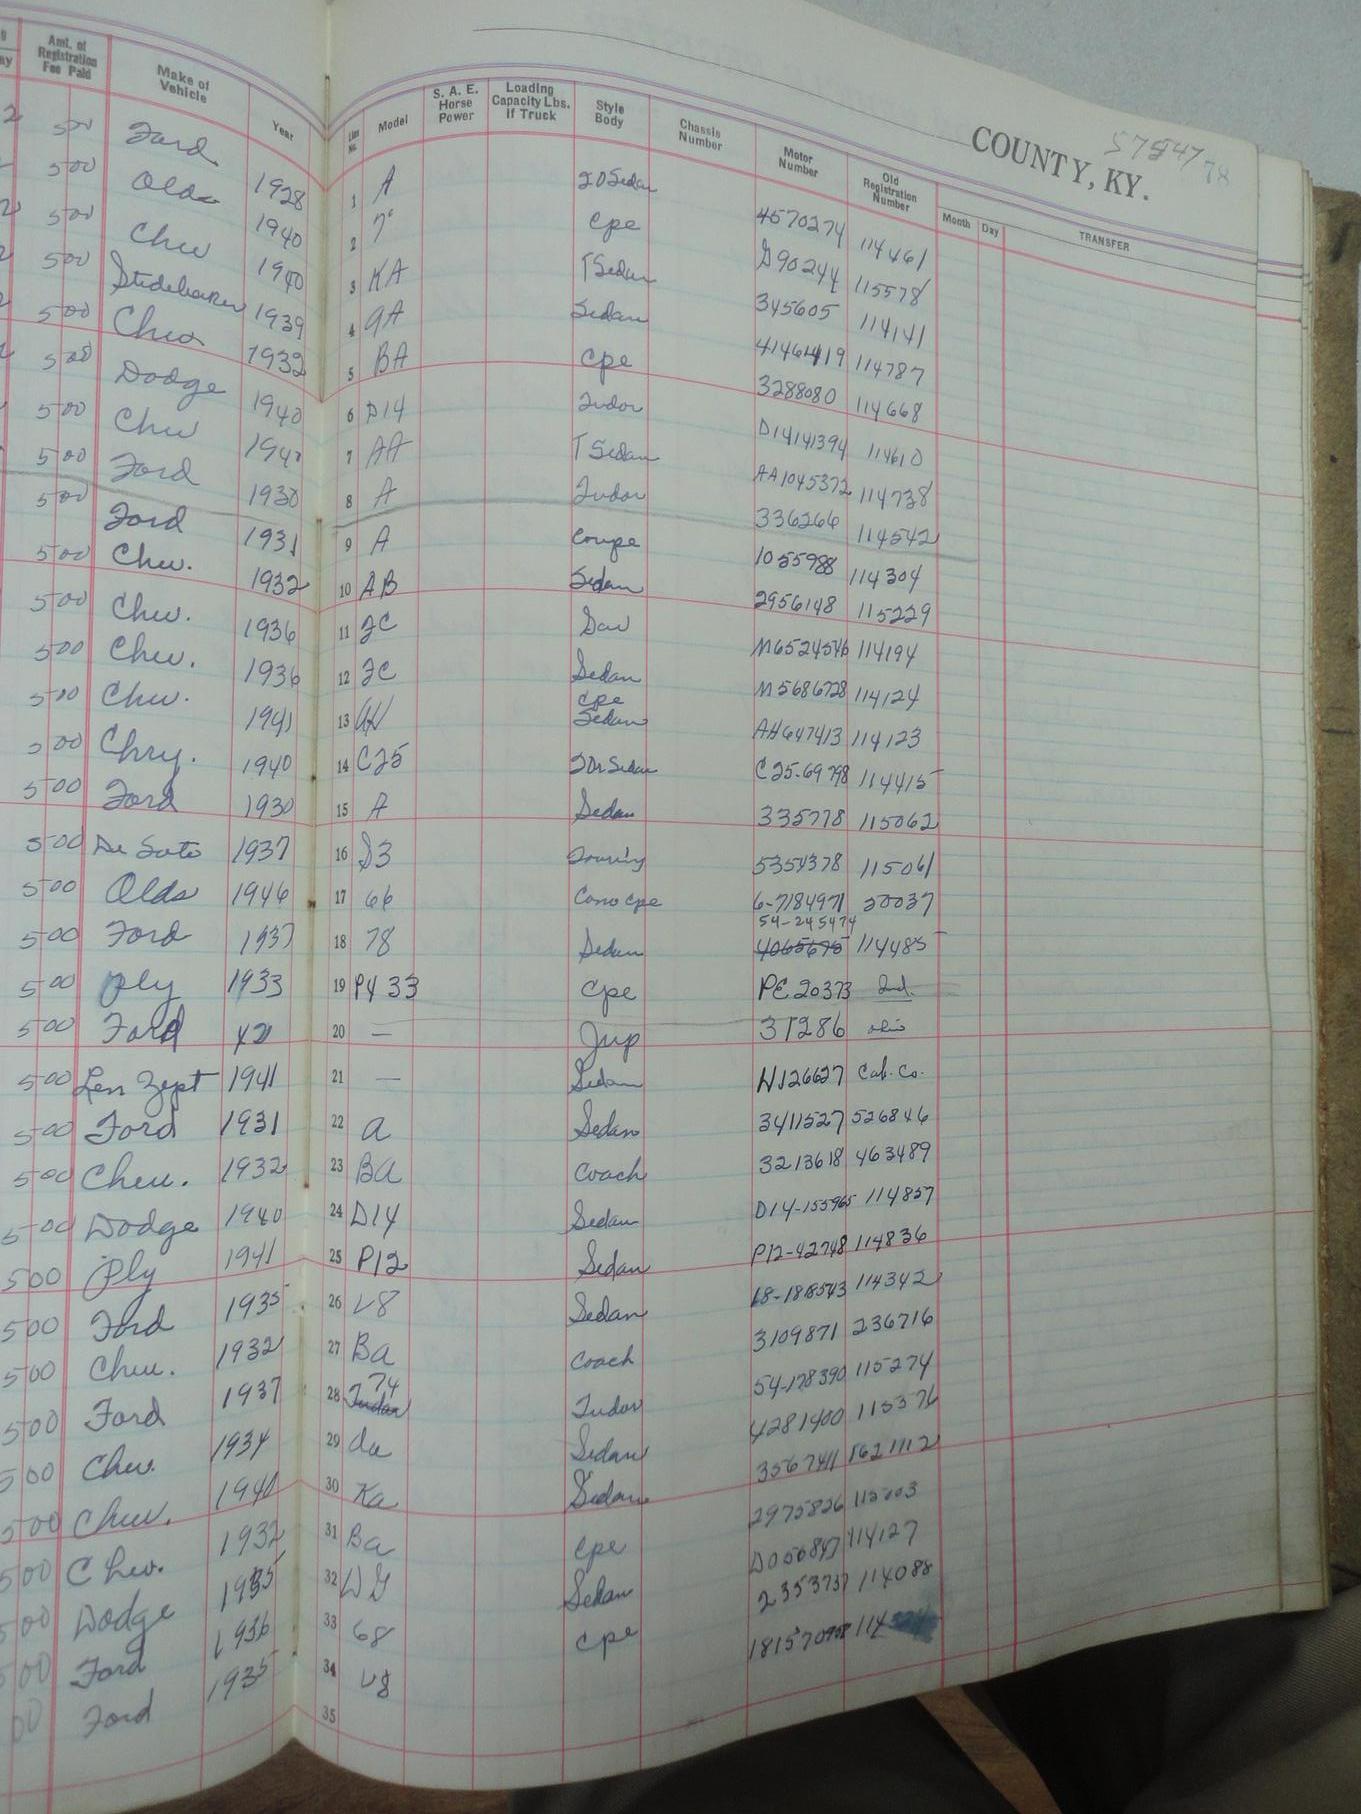 Amt. of Registration Fee Paid | Make of Vehicle | Year | Line No. | Model | S. A. E. Horse Power | Loading Capacity Lbs. If Truck | Style Body | Chassis Number | Motor Number | Old Registration Number | Month | Day | TRANSFER
COUNTY, KY. 78
500 Ford 1928 1 A 2DSedan 4570274 114461
500 Olds 1940 2 Cpe G90244 115578
500 Chev 1940 3 KA TSedan 345605 114141
500 Studebaker 1939 4 9A Sedan 114787
500 Chev 1932 5 BA Cpe 3288080 114668
500 Dodge 1940 6 D14 Tudor D14141394 114610
500 Chev 7 AA T Sedan AA1045372 114738
500 Ford 1930 8 A Tudor 336266 114542
500 Ford 1931 9 A Coupe 1055988 114304
500 Chev. 1932 10 AB Sedan 2956148 115229
500 Chev. 1936 11 FC M6524546 114194
500 Chev. 1936 12 FC Sedan M5686728 114124
500 Chev. 1941 13 Cpe Sedan AH647413 114123
500 Chry. 1940 14 C25 2Dr Sedan C25-69798 114415
500 Ford 1930 15 A Sedan 335778 115062
500 De Soto 1937 16 S3 Touring 5354378 115061
500 Olds 1946 17 66 Conv Cpe 6-7184971 20037
500 Ford 1937 18 78 Sedan 54-245474 114485
500 Ply 1933 19 Cpe PE20373 Ind.
500 Ford 42 20 — Jeep 31286 ohio
500 Len Zept 1941 21 — Sedan H126627 Cab. Co.
500 Ford 1931 22 a Sedan 3411527 526846
500 Chev. 1932 23 Ba Coach 3213618 463489
500 Dodge 1940 24 D14 Sedan D14-155965 114857
500 Ply 1941 25 P12 Sedan P12-42748 114836
500 Ford 1935 26 V8 Sedan 18-1818543 114342
500 Chev. 1932 27 Ba Coach 3109871 236716
500 Ford 1937 28 74 Tudor 54-178390 115274
500 Chev. 1934 29 da Sedan 4281400 115376
500 Chev. 1940 30 Ka Sedan 3567411
500 Chev. 1932 31 Ba Cpe 2975826
500 Dodge 1935 32 Sedan D056847 114127
00 Ford 1936 33 68 Cpe 2353737 114088
00 Ford 1935 34 V8 114
35